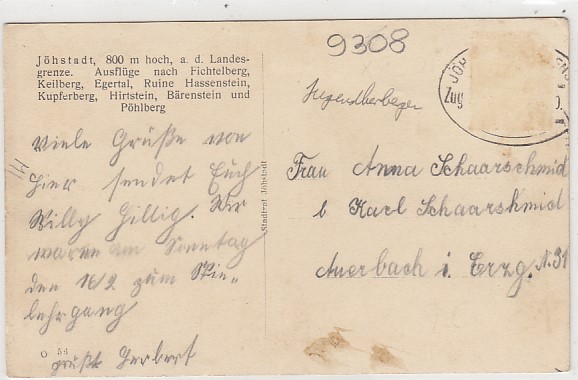 9308
Jöhstadt, 800 m hoch, a. d. Landes-
grenze. Ausflüge nach Fichtelberg,
Keilberg, Egertal, Ruine Hassenstein,
Kupferberg, Hirtstein, Bärenstein und
Pöhlberg
JÖH
Zug
Viele Grüße von
hier sendet Euch
Willy Hillig. Wir
waren am Sonntag
den 16/2 zum Skie-
lehrgang
grüßt Herbert
O 53
Stadtrat Jöhstadt
Frau Anna Schaarschmid
b Karl Schaarshmid
Auerbach i. Erzg. N. 31